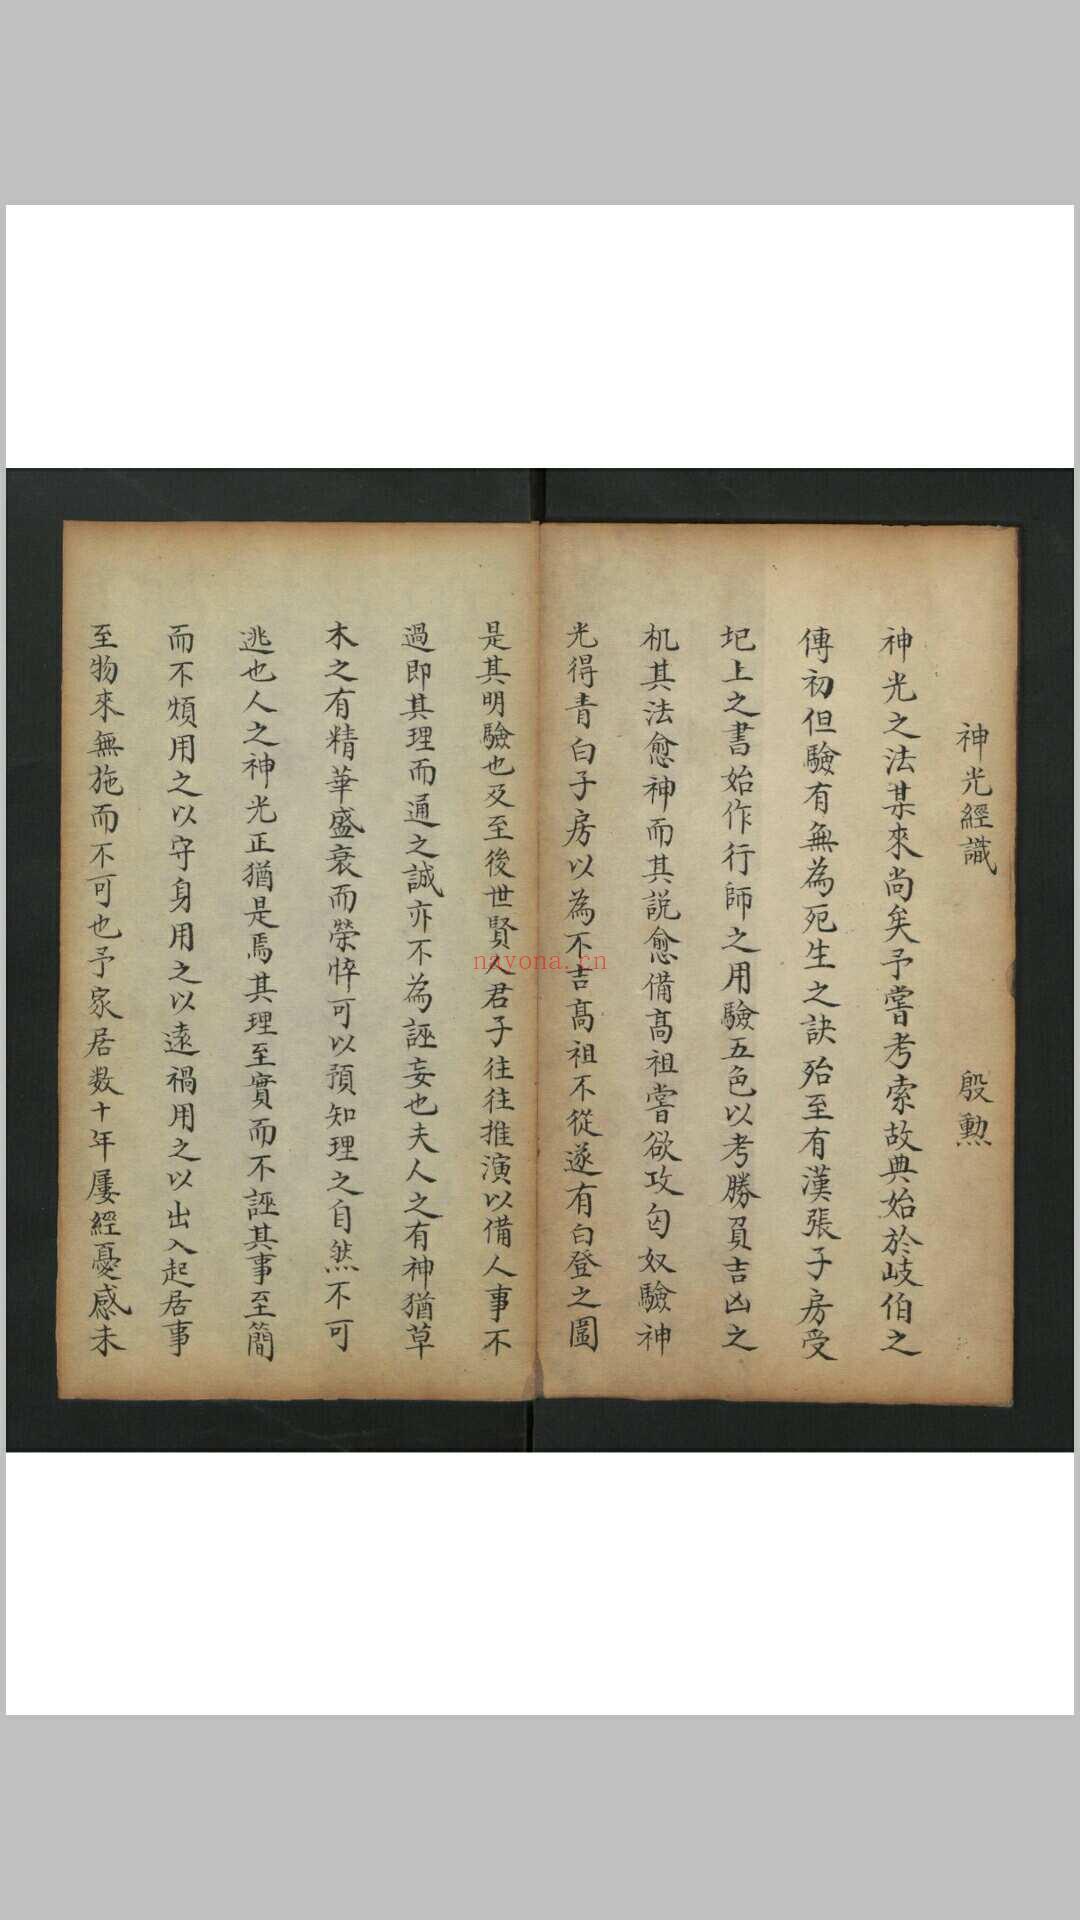 神光經識 殷勲
神光之法某來尚矣予嘗考索故典始於岐伯之
傳初但驗有無為死生之訣殆至有漢張子房受
圯上之書始作行師之用驗五色以考勝負吉凶之
机其法愈神而其説愈備高祖嘗欲攻匈奴驗神
光得青白子房以為不吉高祖不從遂有白登之圖
是其明驗也及至後世賢人君子往往推演以備人事不
過即其理而通之誠亦不為誣妄也夫人之有神猶草
木之有精華盛衰而榮悴可以預知理之自然不可
逃也人之神光正猶是焉其理至實而不誣其事至簡
而不煩用之以守身用之以遠禍用之以出入起居事
至物來無施而不可也予家居数十年屢經憂感未
nayona.cn